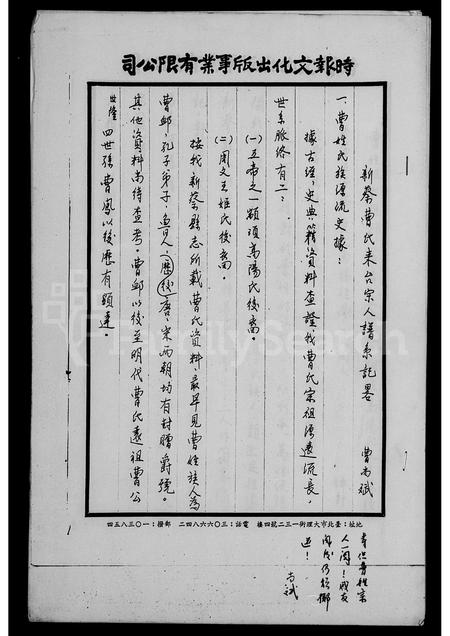 時報文化出版事業有限公司
新蔡曹氏來台宗人譜系記畧 曹尚斌
一、曹姓氏族源流史據：
據古經、史典、籍資料查證、我曹氏宗祖源遠流長，
世系脈絡有二：
(一)五帝之一顓頊高陽氏後裔。
(二)周文王姬氏後裔。
按我新蔡縣志所載曹氏資料，最早見曹姓族人為
曹卹，孔子弟子，魯人（歷後）唐、宋兩朝均有封贈爵號。
其他資料尚待查考。曹卹以後至明代曹氏遠祖曹公
世隆 四世孫曹鳳以後歷有顯達。
地址：臺北市大理街一三二號四樓 電話：三〇六六八四二 郵撥：一〇三八五四
人一閱！
尚斌
FamilySearch